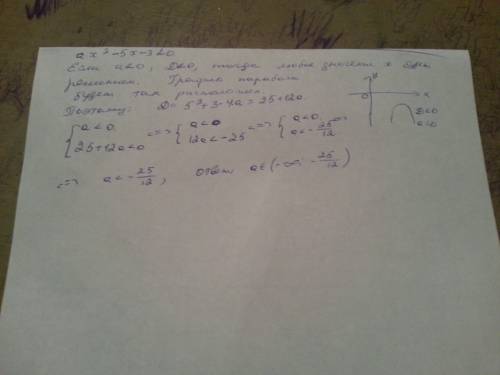 ax² -5x-3<0
Если a<0, D<0, тогда любое значение x будет
решением. График парабола
будет так расположен.
Поэтому: D= 5²+3·4a = 25+12a
{ a<0, 25+12a<0 <=> { a<0 12a<-25 <=> { a<0, a<-25/12 <=>
<=> a<-25/12, Ответ a∈(-∞; -25/12)
y
0 x
D<0
a<0